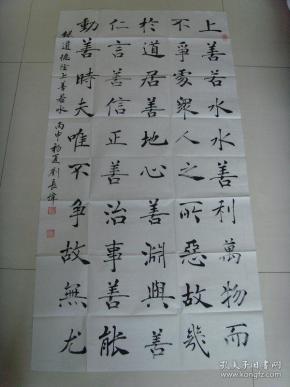 上善若水水善利萬物而
不爭處衆人之所惡故幾
於道居善地心善淵與善
仁言善信正善治事善能
動善時夫唯不争故無尤
録道德経上善若水 丙申初夏劉長偉
孔夫子旧书网